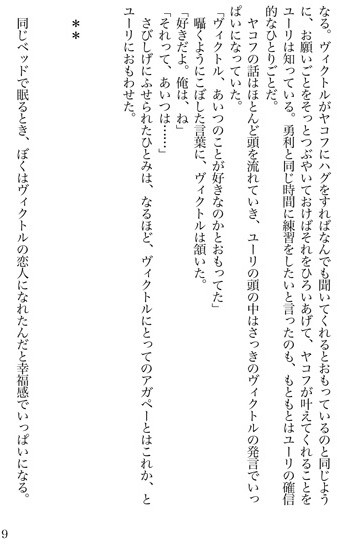 なる。ヴィクトルがヤコフにハグをすればなんでも聞いてくれるとおもっているのと同じよう
に、お願いごとをそっとつぶやいておけばそれをひろいあげて、ヤコフが叶えてくれることを
ユーリは知っている。勇利と同じ時間に練習をしたいと言ったのも、もともとはユーリの確信
的なひとりごとだ。
　ヤコフの話はほとんど頭を流れていき、ユーリの頭の中はさっきのヴィクトルの発言でいっ
ぱいになっていた。
「ヴィクトル、あいつのことが好きなのかとおもってた」
　囁くようにこぼした言葉に、ヴィクトルは頷いた。
「好きだよ。俺は、ね」
「それって、あいつは……」
　さびしげにふせられたひとみは、なるほど、ヴィクトルにとってのアガペーとはこれか、と
ユーリにおもわせた。
＊＊
　同じベッドで眠るとき、ぼくはヴィクトルの恋人になれたんだと幸福感でいっぱいになる。
9